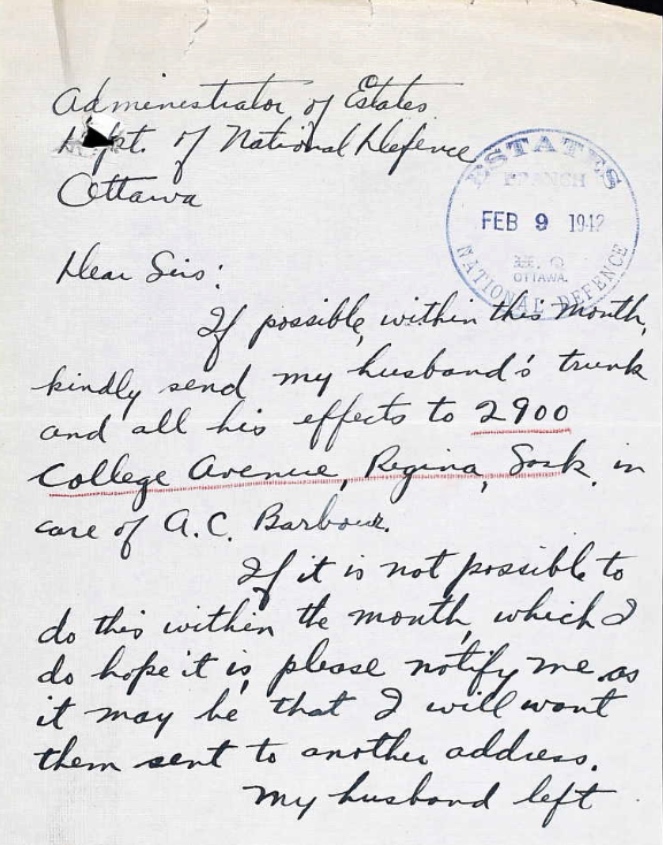 Administrator of Estates
Dept. of National Defence
Ottawa
ESTATES
BRANCH
FEB 9 1942
H.Q.
OTTAWA.
NATIONAL DEFENCE
Dear Sirs:
If possible, within this month,
kindly send my husband's trunk
and all his effects to 2900
College Avenue, Regina, Sask. in
care of A.C. Barbour.
If it is not possible to
do this within the month, which I
do hope it is, please notify me as
it may be that I will want
them sent to another address.
My husband left